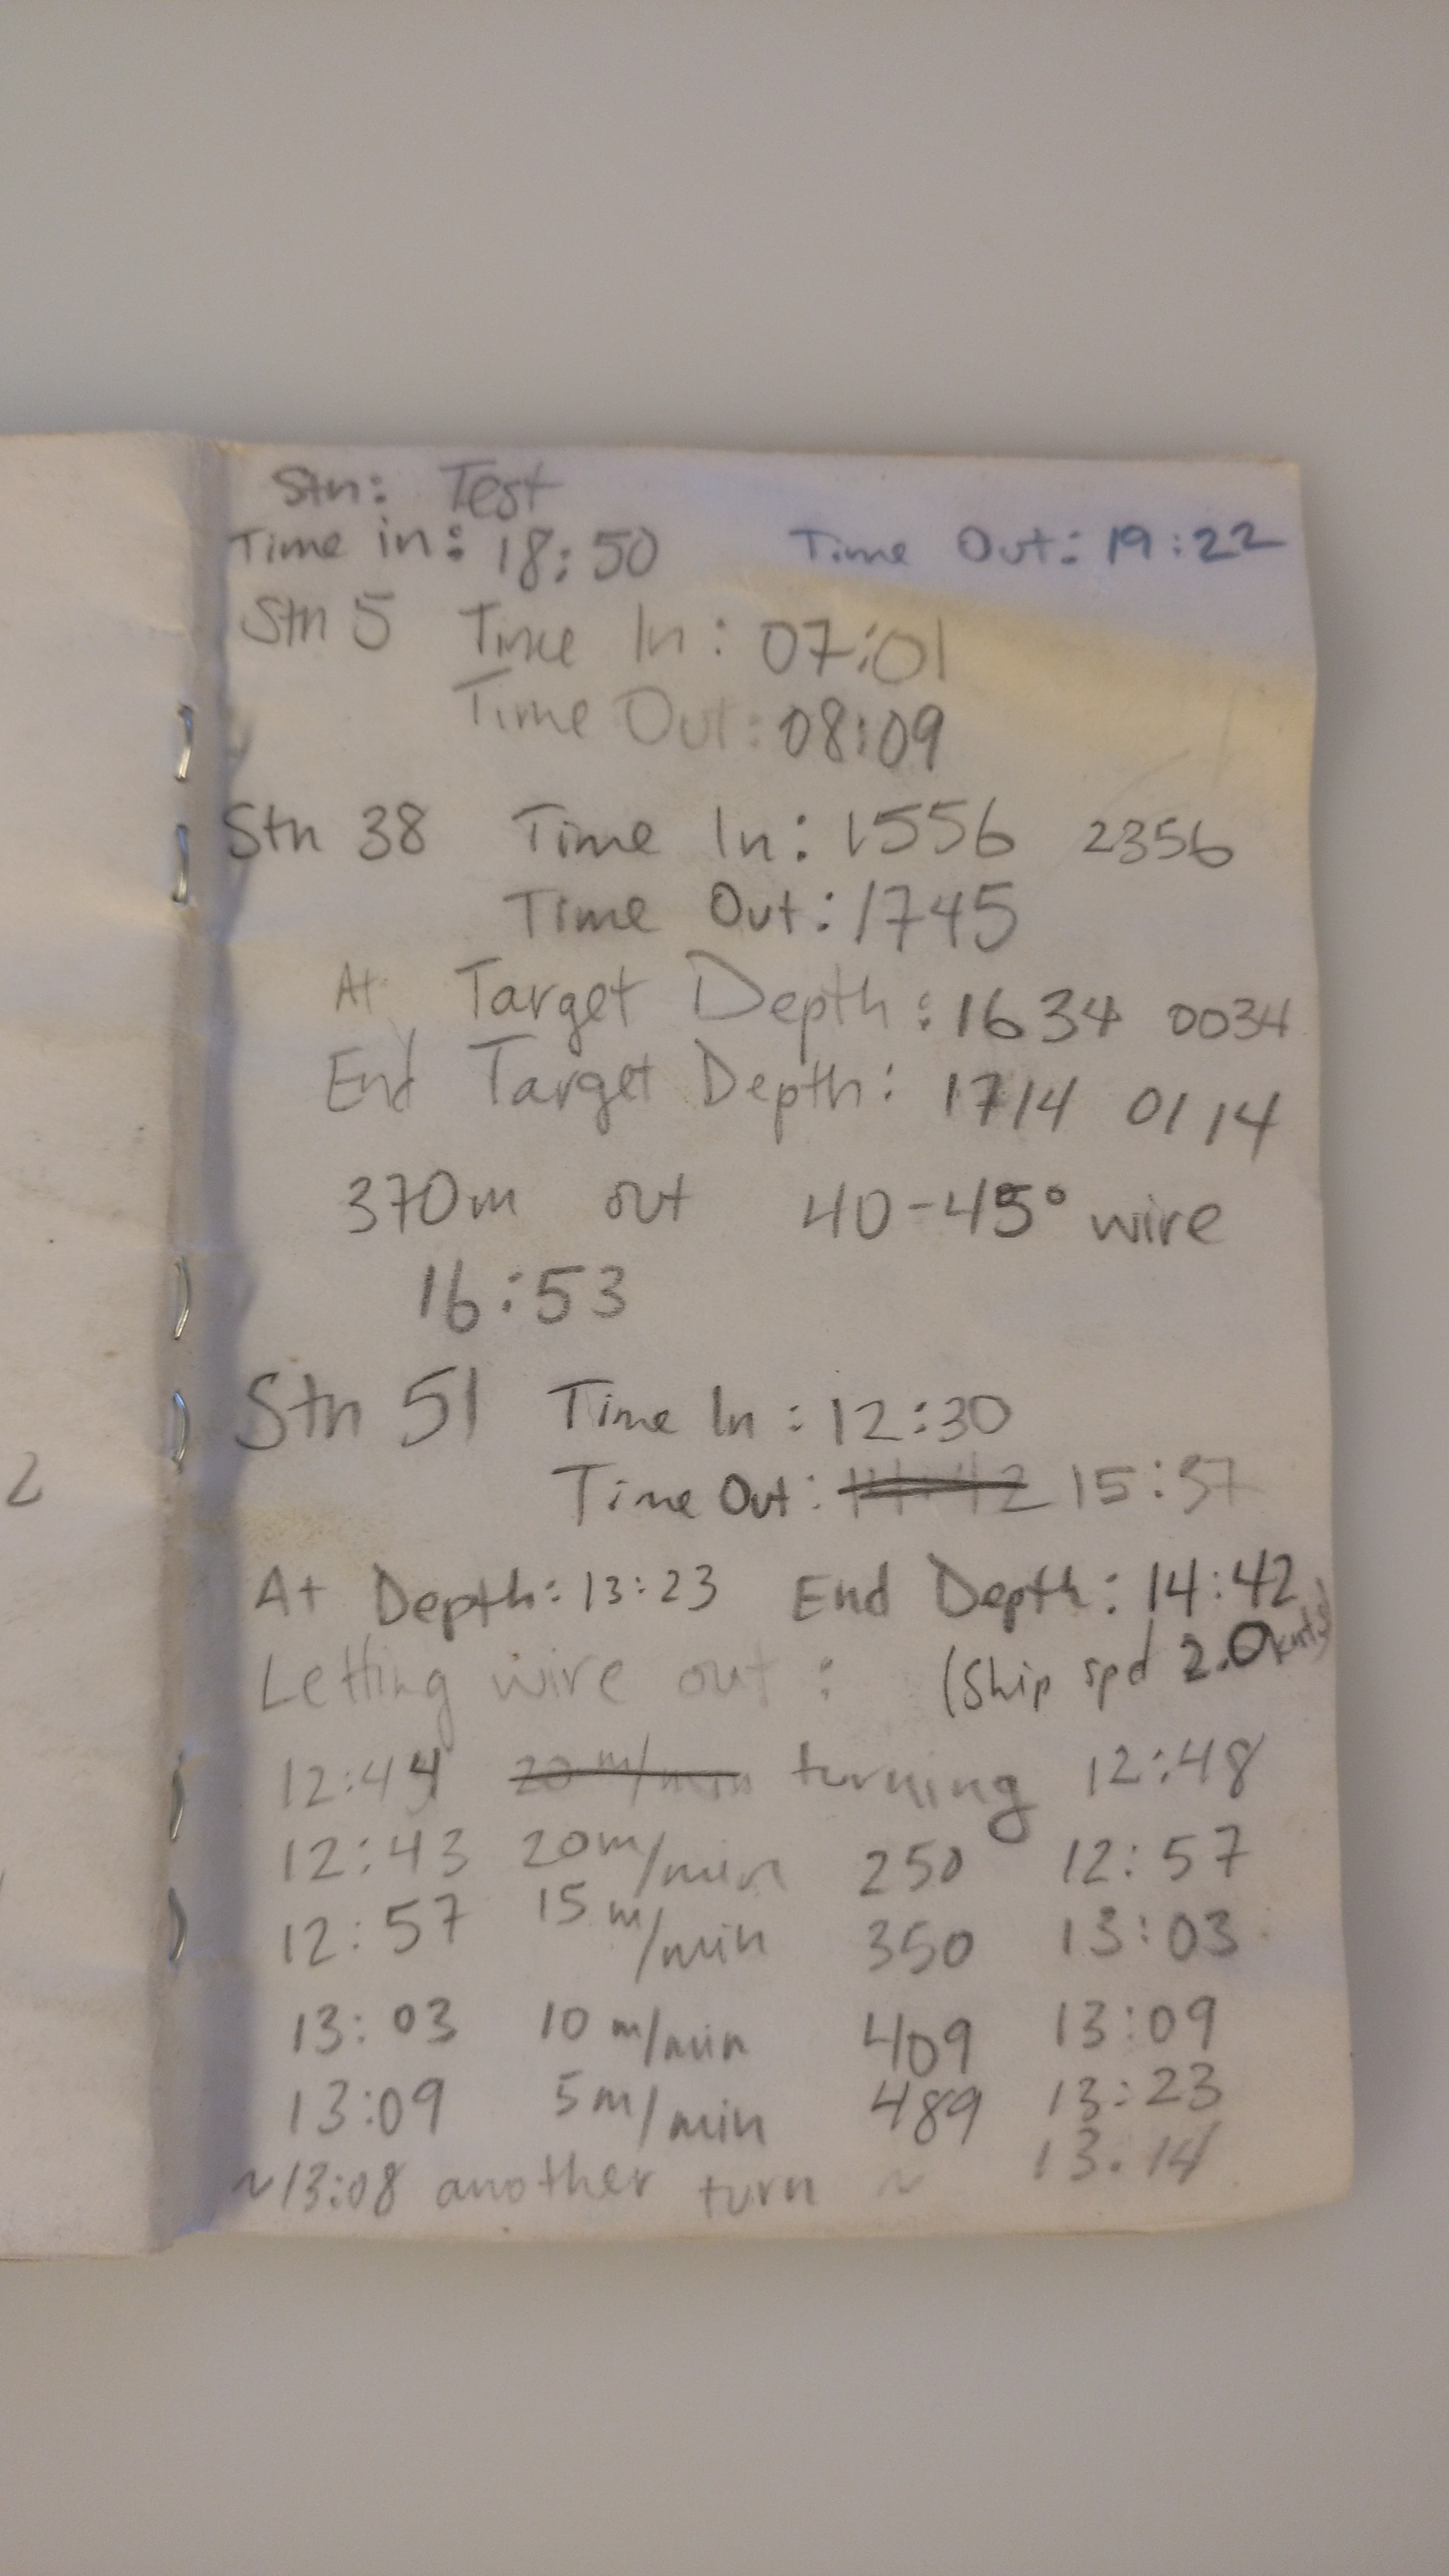 Stn: Test
Time in: 18:50 Time Out: 19:22
Stn 5 Time In: 07:01
Time Out: 08:09
Stn 38 Time In: 1556 2356
Time Out: 1745
At Target Depth: 1634 0034
End Target Depth: 1714 0114
370m out 40-45° wire
16:53
Stn 51 Time In: 12:30
2
Time Out: 14:42 15:37
At Depth: 13:23 End Depth: 14:42
Letting wire out: (Ship spd 2.0knts)
12:44 20m/min turning 12:48
12:43 20m/min 250 12:57
12:57 15m/min 350 13:03
13:03 10m/min 409 13:09
13:09 5m/min 489 13:23
~13:08 another turn ~ 13:14